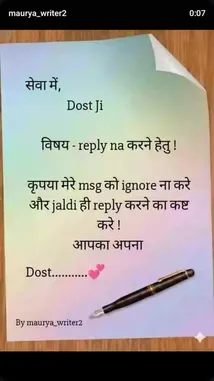 maurya_writer2
0:07
सेवा में,
Dost Ji
विषय - reply na करने हेतु !
कृपया मेरे msg को ignore ना करे
और jaldi ही reply करने का कष्ट
करे !
आपका अपना
Dost............💕
By maurya_writer2